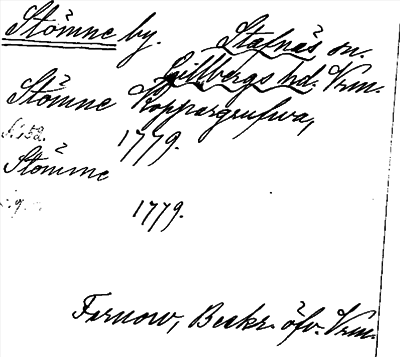 Stömne by. Stafnäs sn.
Gillbergs hd. Vrm.
Stömne Koppargrufva,
s. 152. 1779.
Stömne
1779.
Fernow, Beskr. öfv. Vrm.